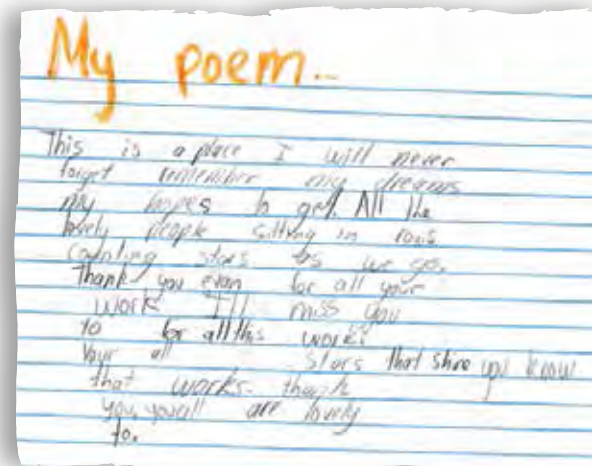 My poem...
This is a place I will never
forget remember my dreams
my hopes to get. All the
lovely people sitting in rows
counting stars as we go.
Thank you evan for all your
work I'll miss you
to for all this work.
Your all stars that shine you know
that works. thank
you, youall are lovely
to.